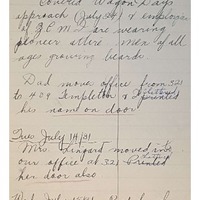 Covered Wagon Days
approach (July 24) & employees
of Z.C.M.I. are wearing
pioneer attire. Men of all
ages growing beards.
Dad moves office from 321
to 429 Templeton & printed
his name on door
Tues July 14/31
Mrs. moved in
our office at 321 Printed
her door also
Wed July